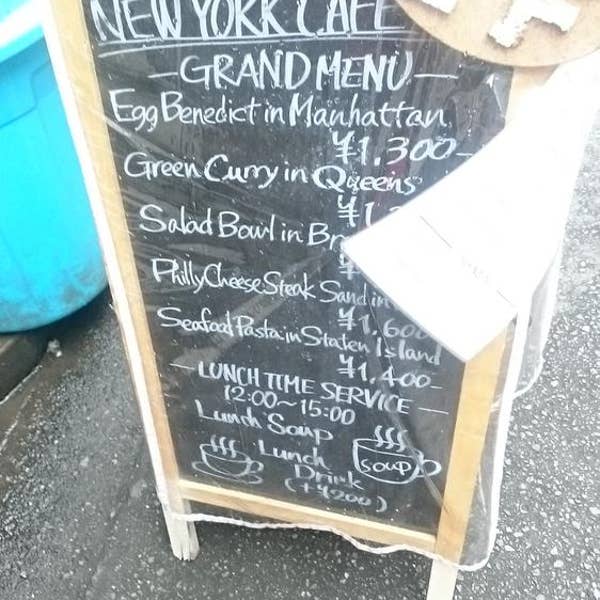 NEW YORK CAFE
—GRAND MENU—
Egg Benedict in Manhattan
¥1.300-
Green Curry in Queens
¥1.
Salad Bowl in Br
¥
Philly Cheese Steak Sand in
¥1.600
Seafood Pasta in Staten Island
¥1.400-
—LUNCH TIME SERVICE—
12:00~15:00
Lunch Soup
Lunch
Drink
(+¥200)
SOUP